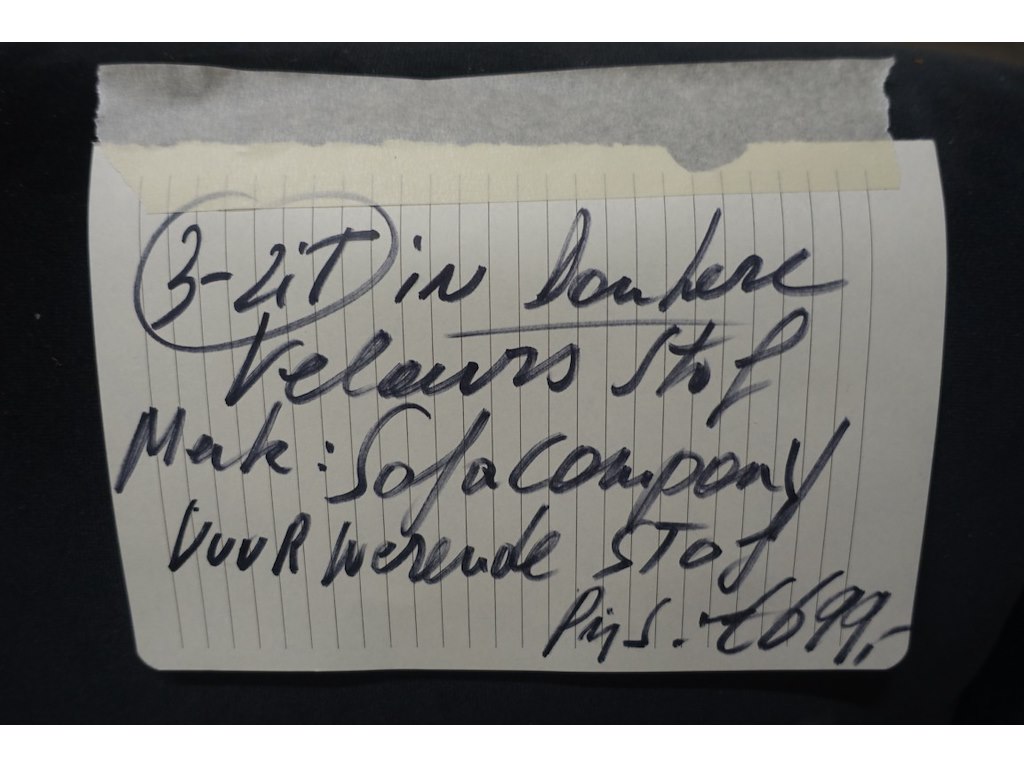 3-zit in Donkere
Velours stof
Merk: Sofacompany
Vuurwerende stof
Prijs: €699,-